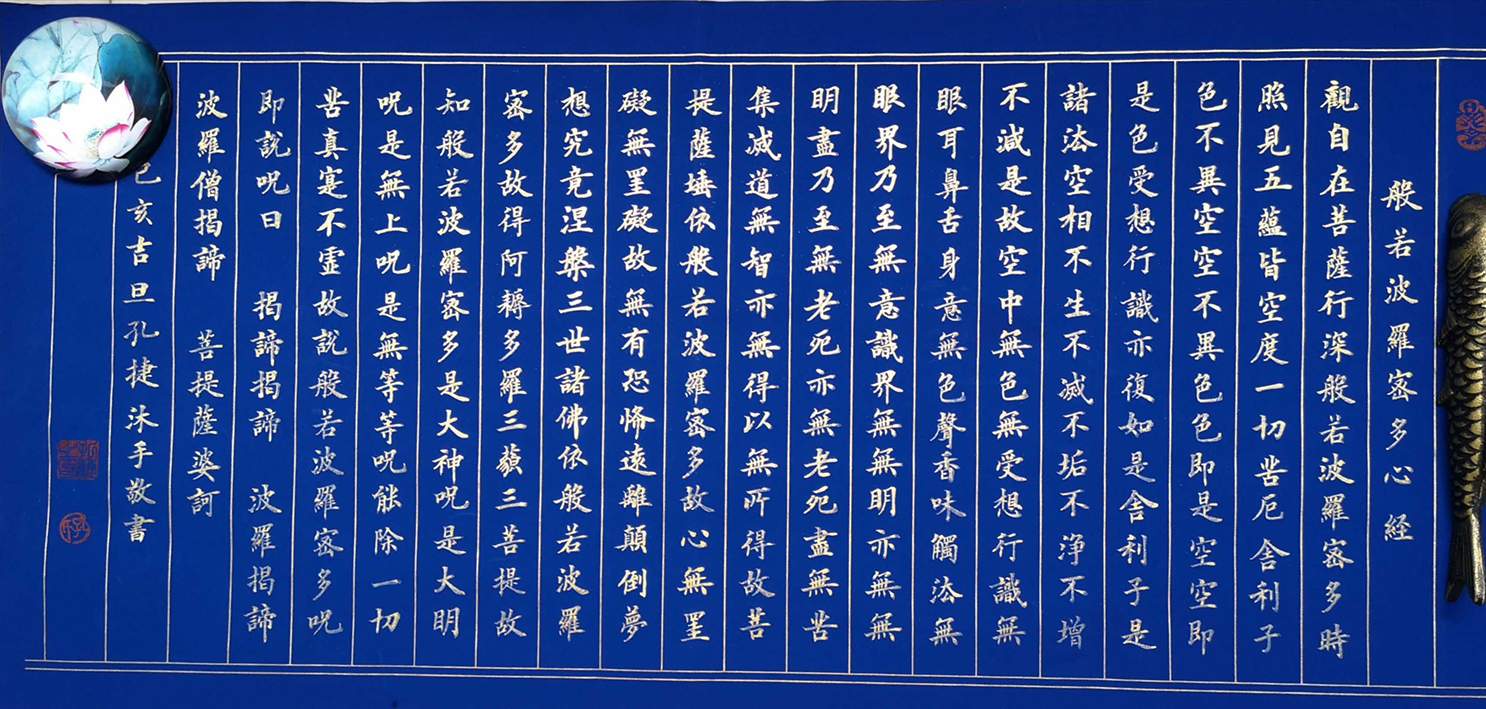 般若波羅密多心経
觀自在菩薩行深般若波羅密多時
照見五蘊皆空度一切苦厄舎利子
色不異空空不異色色即是空空即
是色受想行識亦復如是舎利子是
諸法空相不生不滅不垢不浄不增
不減是故空中無色無受想行識無
眼耳鼻舌身意無色聲香味觸法無
眼界乃至無意識界無無明亦無無
明盡乃至無老死亦無老死盡無苦
集滅道無智亦無得以無所得故菩
提薩埵依般若波羅密多故心無罣
礙無罣礙故無有恐怖遠離顛倒夢
想究竟涅槃三世諸佛依般若波羅
密多故得阿耨多羅三藐三菩提故
知般若波羅密多是大神呪是大明
呪是無上呪是無等等呪能除一切
苦真寔不虛故説般若波羅密多呪
即説呪曰 揭諦揭諦 波羅揭諦
波羅僧揭諦 菩提薩婆訶
己亥吉旦孔捷沐手敬書